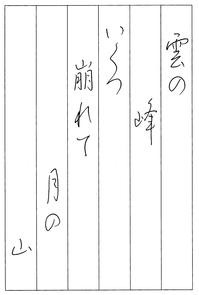 雲の
峰
いくつ
崩れて
月の
山